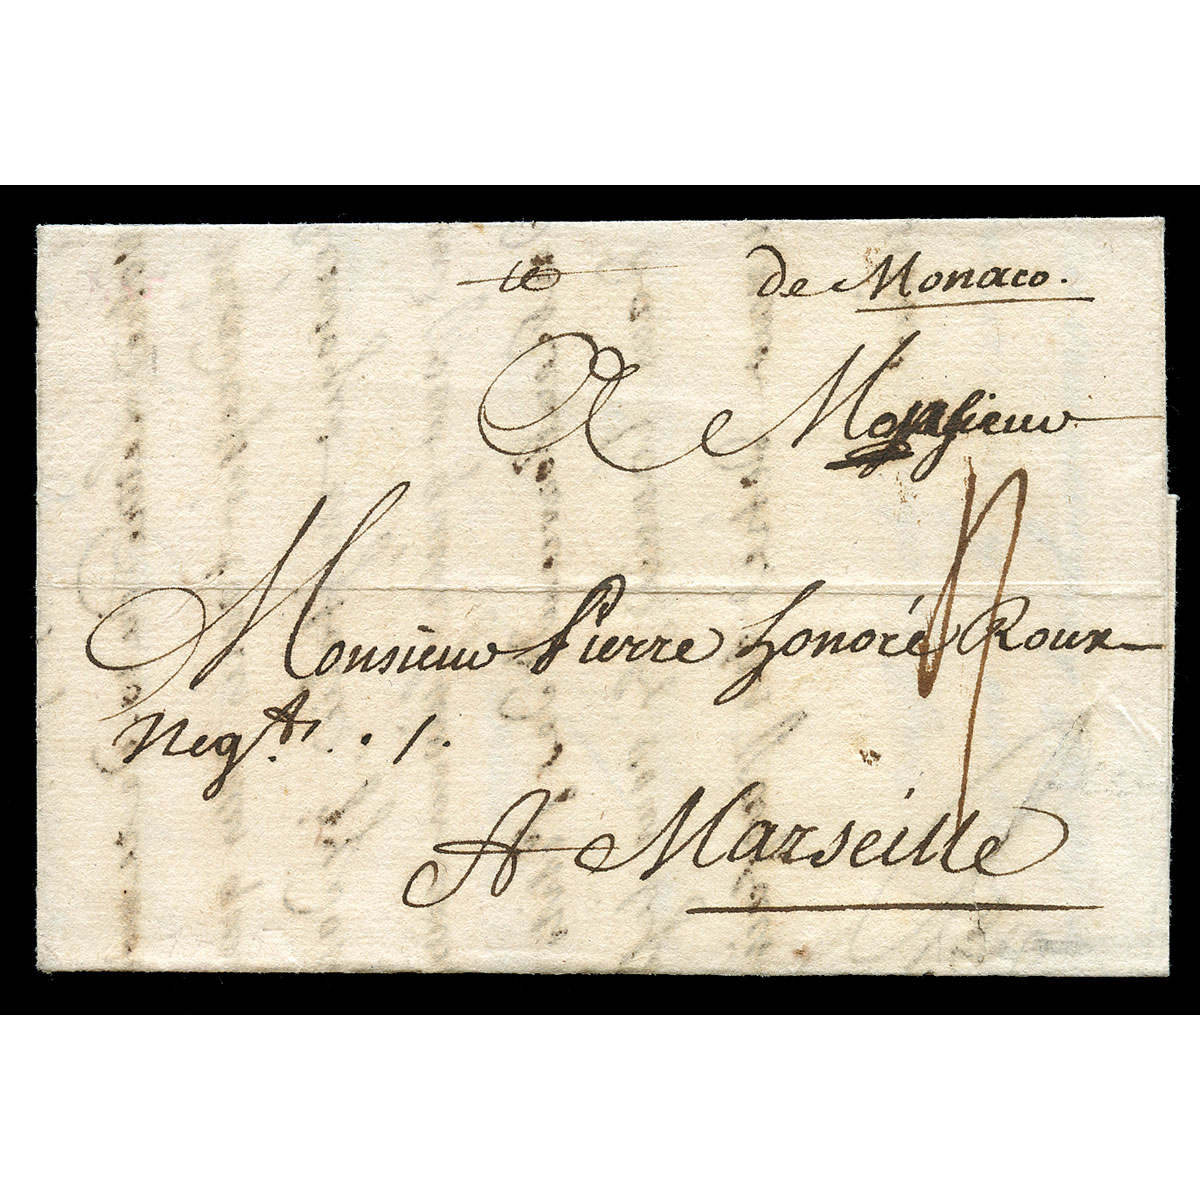 te de Monaco.
A Monsieur
Monsieur Pierre honoré Roux
Negt. . /.
A Marseille